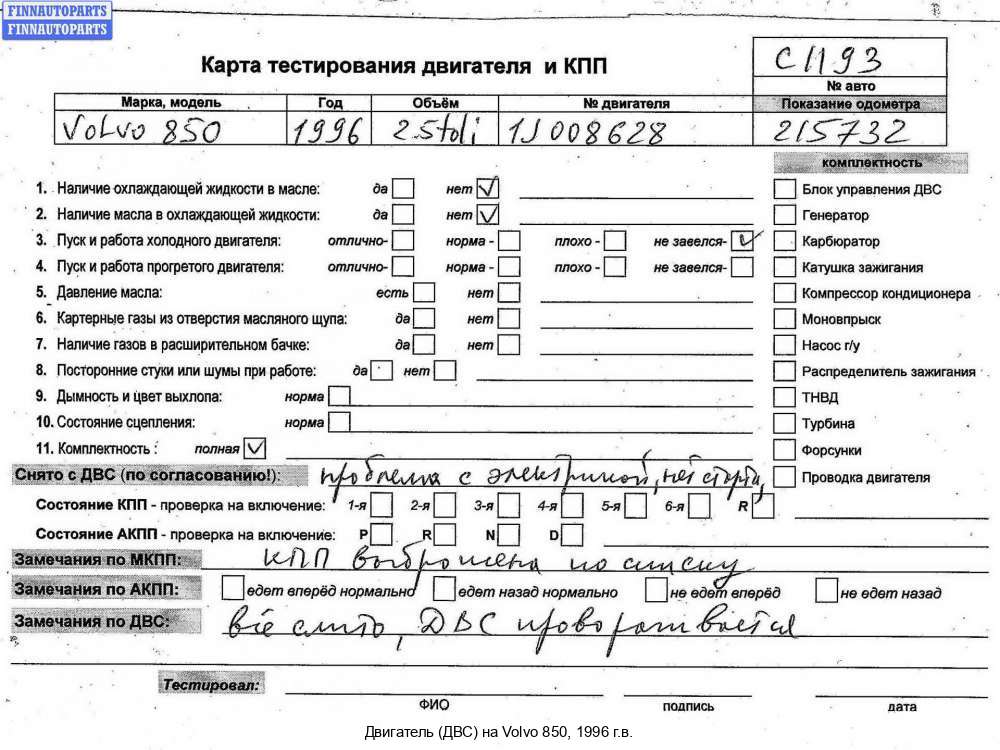 FINNAUTOPARTS
FINNAUTOPARTS
C1193
Карта тестирования двигателя и КПП
№ авто
Марка, модель Год Объём № двигателя Показание одометра
Volvo 850 1996 2.5tdi 1J008628 215732
комплектность
1. Наличие охлаждающей жидкости в масле: да нет Блок управления ДВС
2. Наличие масла в охлаждающей жидкости: да нет Генератор
3. Пуск и работа холодного двигателя: отлично- норма - плохо - не завелся- Карбюратор
4. Пуск и работа прогретого двигателя: отлично- норма - плохо - не завелся- Катушка зажигания
5. Давление масла: есть нет Компрессор кондиционера
6. Картерные газы из отверстия масляного щупа: да нет Моновпрыск
7. Наличие газов в расширительном бачке: да нет Насос г/у
8. Посторонние стуки или шумы при работе: да нет Распределитель зажигания
9. Дымность и цвет выхлопа: норма ТНВД
10. Состояние сцепления: норма Турбина
11. Комплектность : полная Форсунки
Снято с ДВС (по согласованию!): проблема с электрикой, нет старта, Проводка двигателя
Состояние КПП - проверка на включение: 1-я 2-я 3-я 4-я 5-я 6-я R
Состояние АКПП - проверка на включение: P R N D
Замечания по МКПП: КПП выброшена по списку
Замечания по АКПП: едет вперёд нормально едет назад нормально не едет вперёд не едет назад
Замечания по ДВС: всё слито, ДВС проворачивается
Тестировал:
ФИО подпись дата
Двигатель (ДВС) на Volvo 850, 1996 г.в.